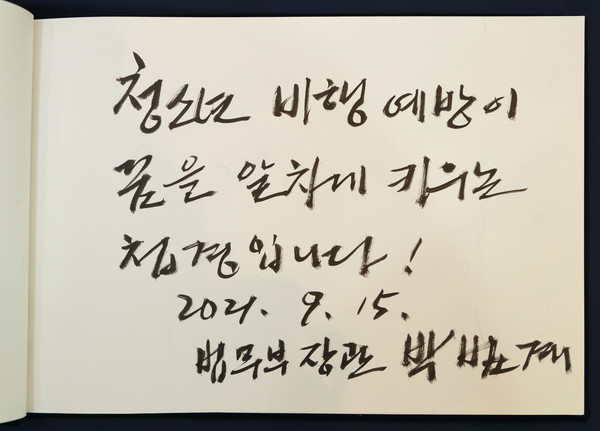 청소년 비행 예방이
꿈을 알차게 키우는
첩경입니다!
2021. 9. 15.
법무부장관 박범계